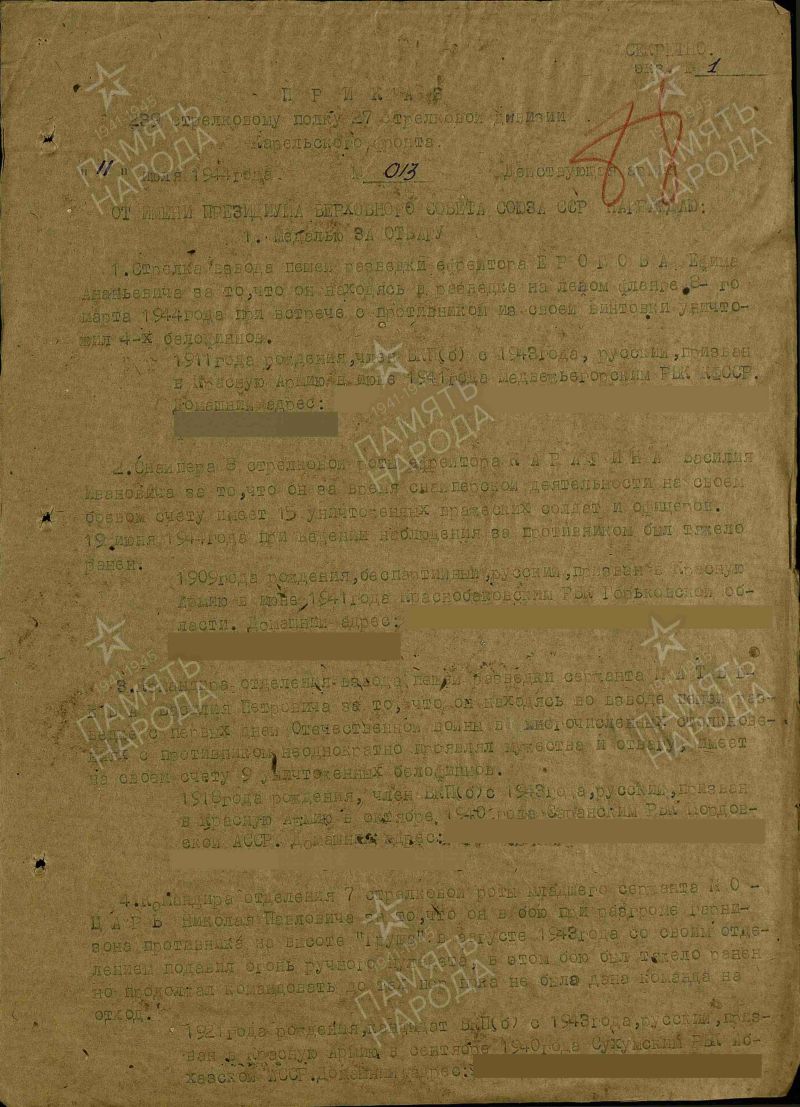 СЕКРЕТНО.
экз. № 1
88
П Р И К А З
239 стрелковому полку 27 стрелковой дивизии
Карельского фронта.
"11" июля 1944года. № 013 Действующая армия
ОТ ИМЕНИ ПРЕЗИДИУМА ВЕРХОВНОГО СОВЕТА СОЮЗА ССР НАГРАЖДАЮ:
1. Медалью ЗА ОТВАГУ
1.Стрелка взвода пешей разведки ефрейтора Ефима
Ананьевича за то,что он находясь в разведке на левом фланге 8-го
марта 1944года при встрече с противником из своей винтовки уничто-
жил 4-х белофинов.
1911года рождения,член ВКП(б) с 1943года, русский,призван
в Красную Армию в июне 1941года Медвежьегорским РВК КФССР.
Домашний адрес:
2.Снайпера 8 стрелковой роты ефрейтора Василия
Ивановича за то,что он за время снайперской деятельности на своем
боевом счету имеет 15 уничтоженных вражеских солдат и офицеров.
19 июня 1944года при ведении наблюдения за противником был тяжело
ранен.
1909года рождения,беспартийный,русский,призван в Красную
Армию в июне 1941года Краснобаковским РВК Горьковской об-
ласти. Домашний адрес:
3.Командира отделения взвода пешей разведки сержанта
Василия Петровича за то, что он находясь во взводе пешей раз-
ведки с первых дней Отечественной войны в многочисленных столкнове-
ниях с противником неоднократно проявлял мужество и отвагу, имеет
на своем счету 9 уничтоженных белофинов.
1918года рождения, член ВКП(б) с 1943года,русский,призван
в Красную Армию в октябре 1940года РВК Мордов-
ской АССР. Домашний адрес:
4.Командира отделения 7 стрелковой роты младшего сержанта К О -
Ц А Р Ь Николая Павловича за то,что он в бою при разгроме гарни-
зона противника на высоте "Груша" в августе 1943года со своим отде-
лением подавил огонь ручного пулемета, в этом бою был тяжело ранен
но продолжал командовать до тех пор пока не была дана команда на
отход.
1921года рождения,кандидат ВКП(б) с 1943года,русский,приз-
ван в Красную Армию в сентябре 1940года Сухумским РВК Аб-
хазской АССР.Домашний адрес:
ПАМЯТЬ НАРОДА
1941-1945